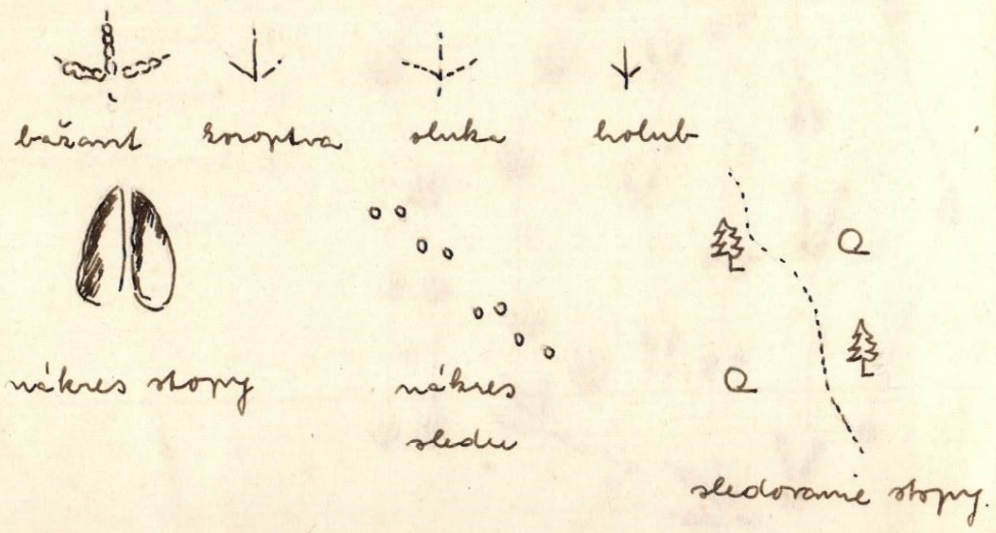 bažant koroptva sluka holub
nákres stopy
nákres
sledu
sledovanie stopy.